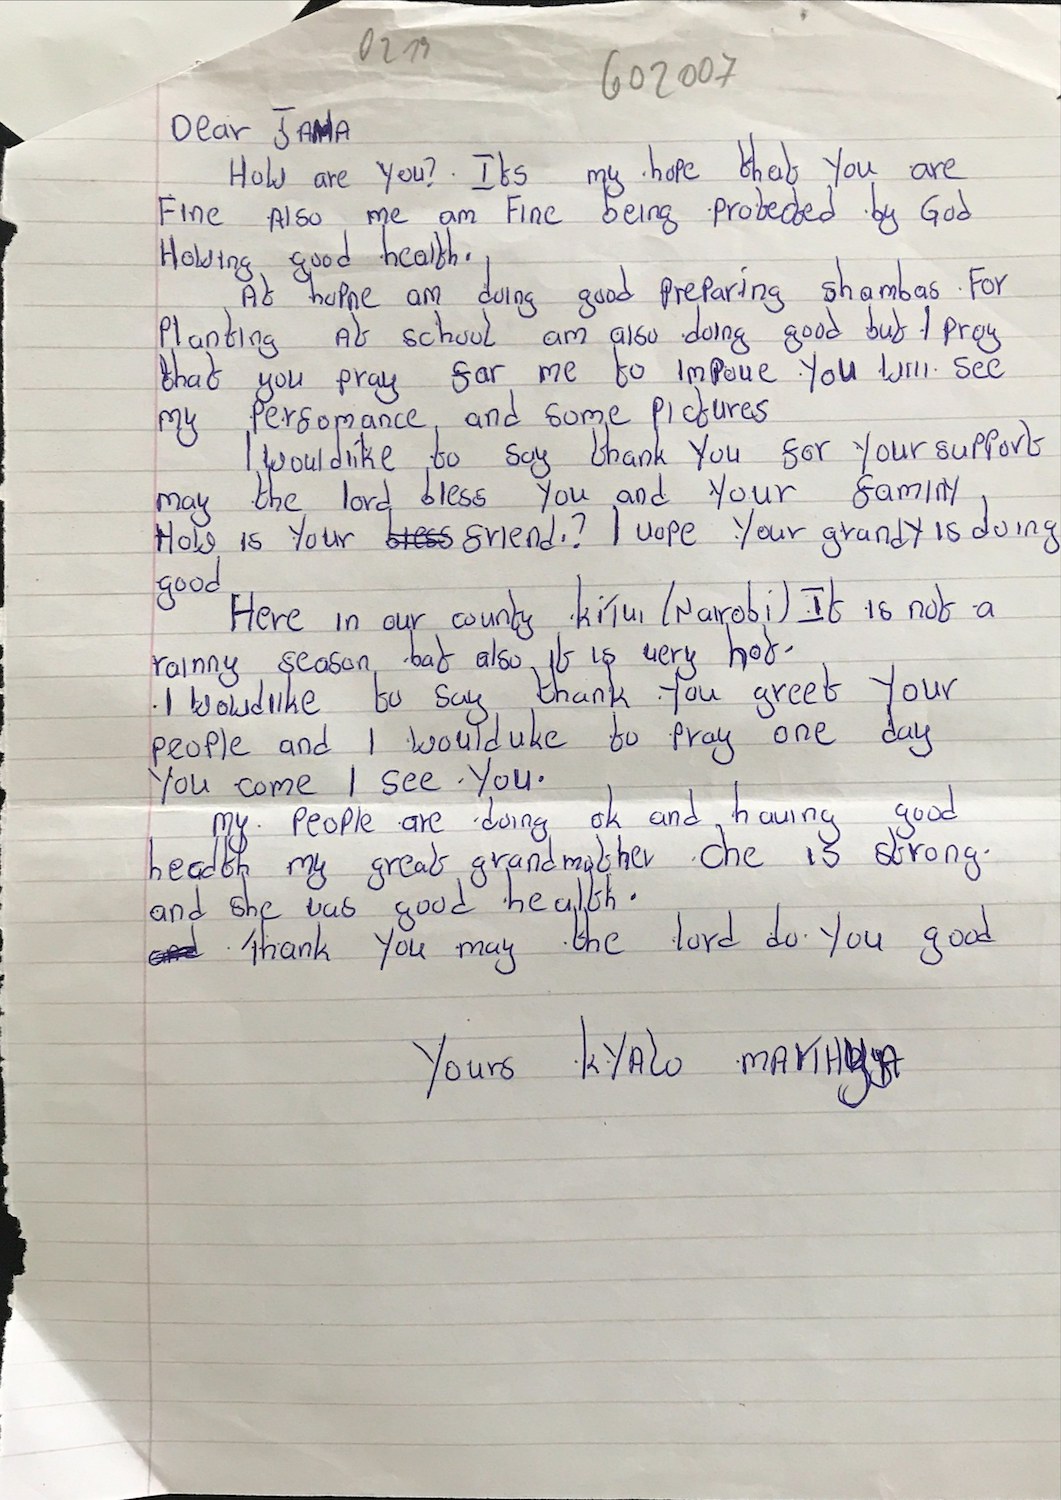 0219
602007
Dear JAMA
How are you? Its my hope that you are
Fine Also me am Fine being protected by God
Having good health.
At home am doing good preparing shambas For
Planting At school am also doing good but I pray
that you pray for me to impove you will see
my Persomance and some pictures
I wouldlike to say thank you for your support
may the lord bless you and your faminy
How is your bless friend? I hope your grandy is doing
good
Here in our county kitui (Nairobi) It is not a
rainny season but also it is very hot.
I wouldlike to say thank you greet your
people and I wouldlike to pray one day
you come I see you.
my people are doing ok and having good
headth my great grandmother che is strong.
and she has good health.
and thank you may the lord do you good
Yours kyalo